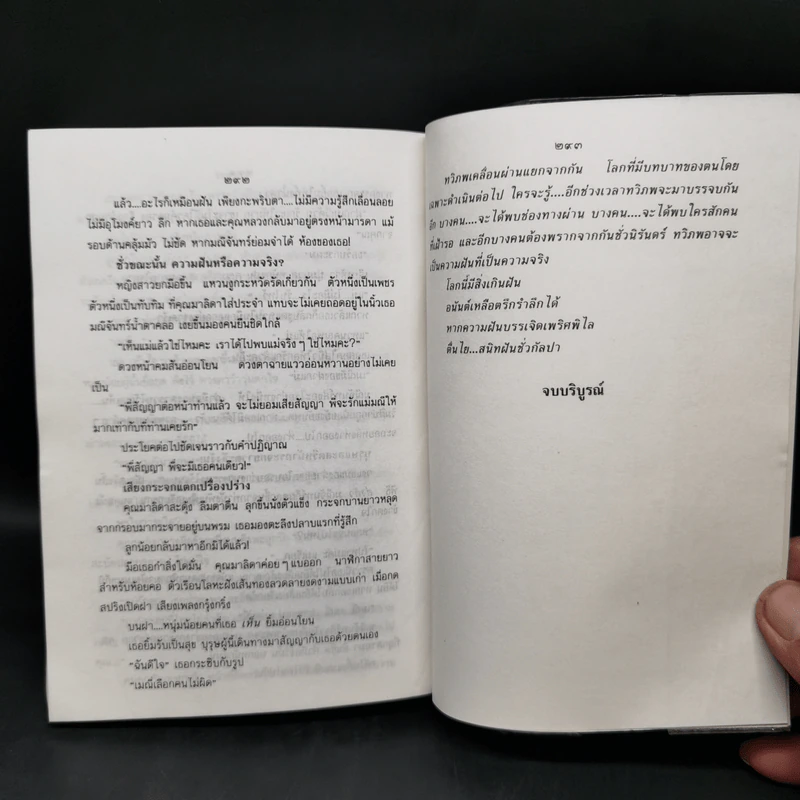 ๒๙๒
แล้ว....อะไรก็เหมือนฝัน เพียงกะพริบตา....ไม่มีความรู้สึกเลื่อนลอย
ไม่มีอุโมงค์ยาว ลึก หากเธอและคุณหลวงกลับมาอยู่ตรงหน้ามารดา แม้
รอบด้านคลุ้มมัว ไม่ชัด หากมณีจันทร์ย่อมจำได้ ห้องของเธอ!
ชั่วขณะนั้น ความฝันหรือความจริง?
หญิงสาวยกมือขึ้น แหวนงูกระหวัดรัดเกี่ยวกัน ตัวหนึ่งเป็นเพชร
ตัวหนึ่งเป็นทับทิม ที่คุณมาลิดาใส่ประจำ แทบจะไม่เคยถอดอยู่ในนิ้วเธอ
มณีจันทร์น้ำตาคลอ เงยขึ้นมองคนยืนชิดใกล้
"เห็นแม่แล้วใช่ไหมคะ เราได้พบแม่จริงๆ ใช่ไหมคะ?"
ดวงหน้าคมสันอ่อนโยน ดวงตาฉายแววอ่อนหวานอย่างไม่เคย
เป็น
"พี่สัญญาต่อหน้าท่านแล้ว จะไม่ยอมเสียสัญญา พี่จะรักแม่มณีให้
มากเท่ากับที่ท่านเคยรัก"
ประโยคต่อไปชัดเจนราวกับคำปฏิญาณ
"พี่สัญญา พี่จะมีเธอคนเดียว!"
เสียงกระจกแตกเปรื่องปร่าง
คุณมาลิดาสะดุ้ง ลืมตาตื่น ลุกขึ้นนั่งตัวแข็ง กระจกบานยาวหลุด
จากกรอบมากระจายอยู่บนพรม เธอมองตะลึงปลาบแรกที่รู้สึก
ลูกน้อยกลับมาหาอีกมิได้แล้ว!
มือเธอกำสิ่งใดมั่น คุณมาลิดาค่อยๆ แบออก นาฬิกาสายยาว
สำหรับห้อยคอ ตัวเรือนโลหะฝังเส้นทองลวดลายงดงามแบบเก่า เมื่อกด
สปริงเปิดฝา เสียงเพลงกรุ้งกริ๊ง
บนฝา....หนุ่มน้อยคนที่เธอ เห็น ยิ้มอ่อนโยน
เธอยิ้มรับเป็นสุข บุรุษผู้นี้เดินทางมาสัญญากับเธอด้วยตนเอง
"ฉันดีใจ" เธอกระซิบกับรูป
"เมณี่เลือกคนไม่ผิด"
๒๙๓
ทวิภพเคลื่อนผ่านแยกจากกัน โลกที่มีบทบาทของตนโดย
เฉพาะดำเนินต่อไป ใครจะรู้....อีกช่วงเวลาทวิภพจะมาบรรจบกัน
อีก บางคน....จะได้พบช่องทางผ่าน บางคน....จะได้พบใครสักคน
ที่เฝ้ารอ และอีกบางคนต้องพรากจากกันชั่วนิรันดร์ ทวิภพอาจจะ
เป็นความฝันที่เป็นความจริง
โลกนี้มีสิ่งเกินฝัน
อนันต์เหลือตรึกรำลึกได้
หากความฝันบรรเจิดเพริศพิไล
ตื่นไย...สนิทฝันชั่วกัลปา
จบบริบูรณ์